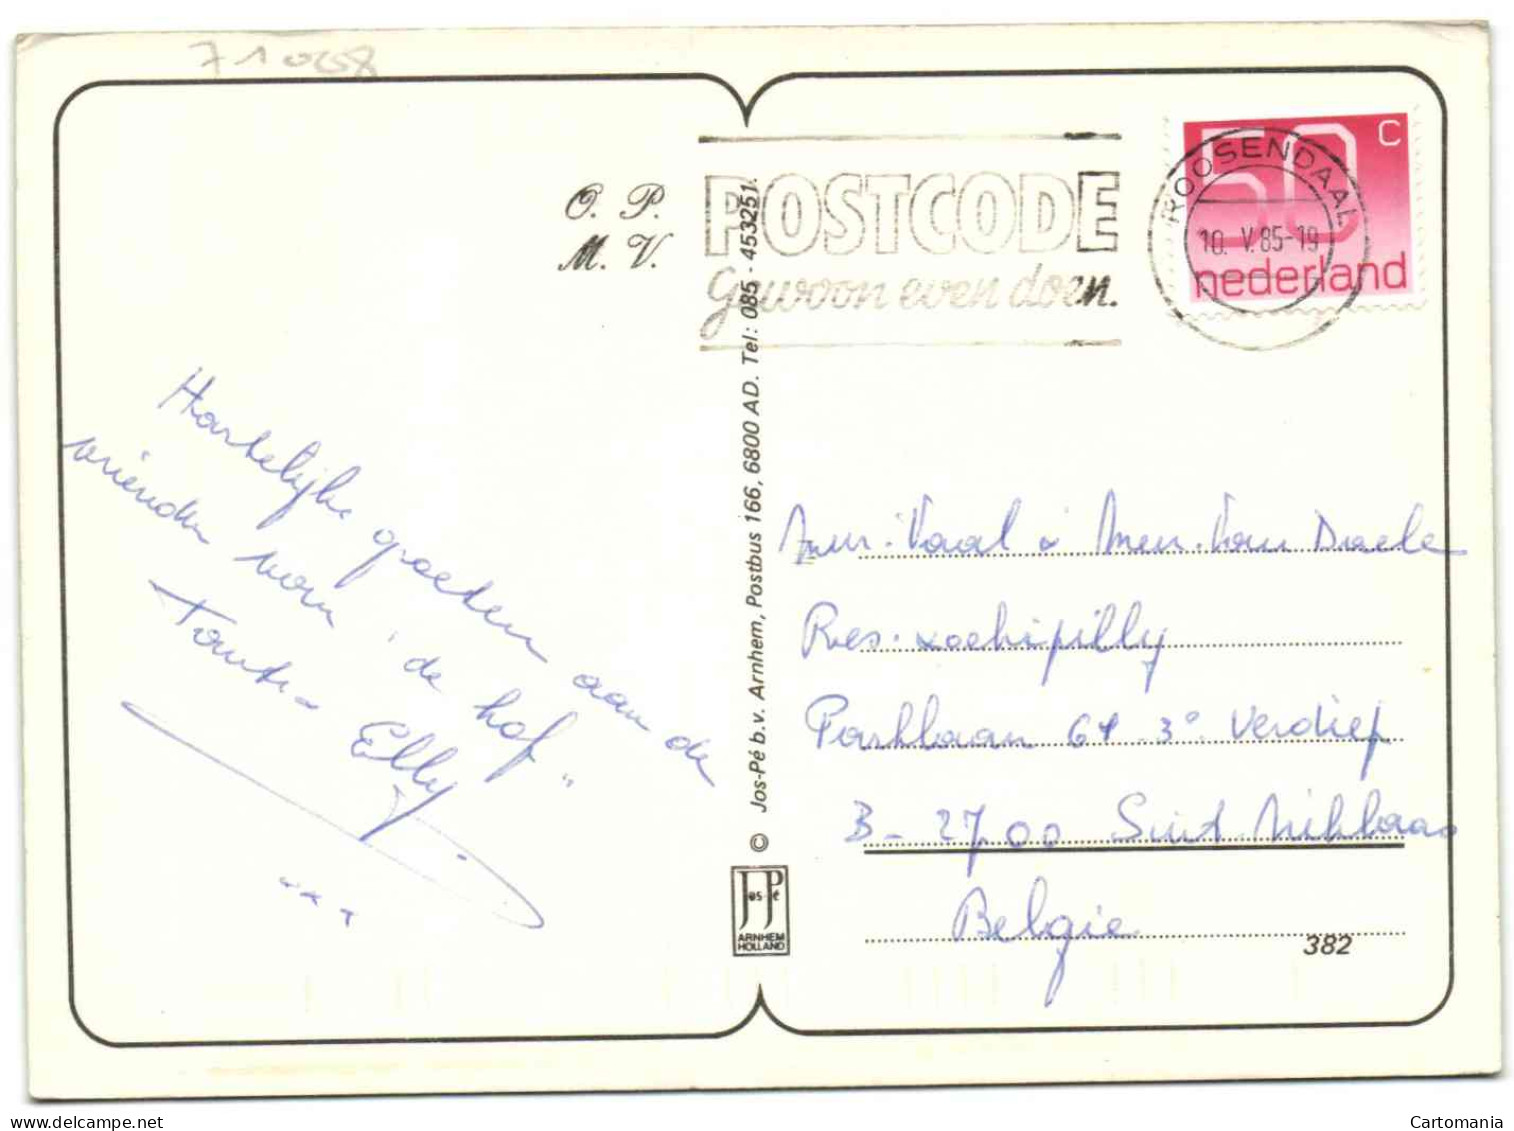 71008
O. P.
M. V.
POSTCODE
Gewoon even doen.
50 C
nederland
ROOSENDAAL
10. V.85-19
Hartelijke groeten aan de
vrienden van "de hof"
Tante Elly
© Jos-Pé b.v. Arnhem, Postbus 166, 6800 AD. Tel.: 085 - 453251.
Jos Pé
ARNHEM
HOLLAND
Vaal Mevr. Van Daele
Res.
Parklaan 3° Verdiep
B - 2700 Sint Niklaas
België
382
Cartomania